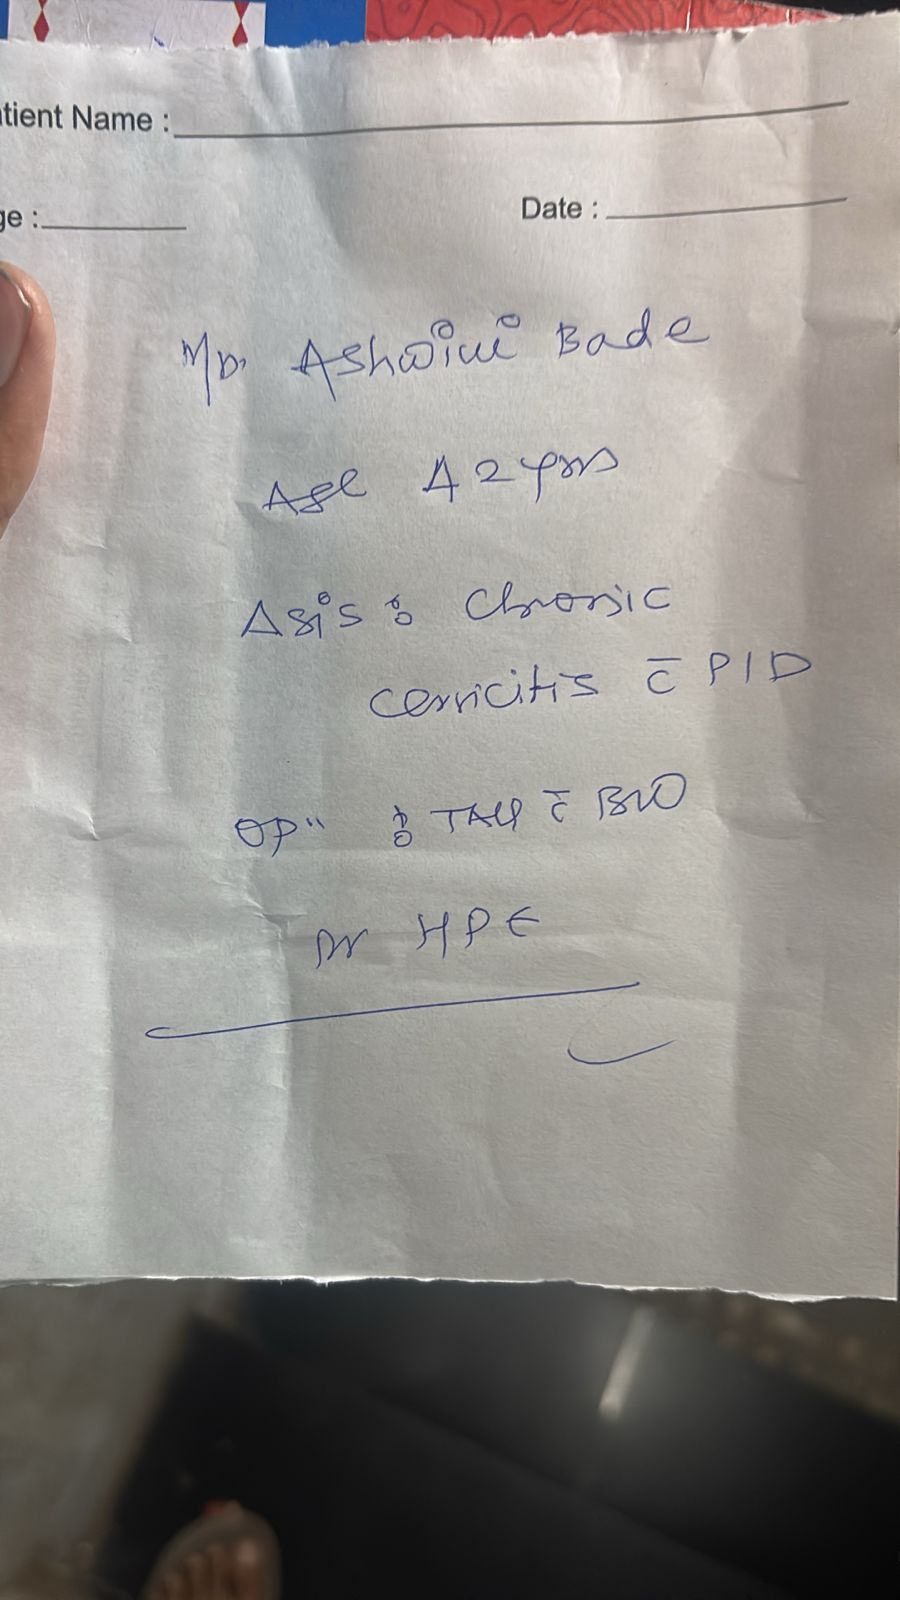 tient Name :
ge :
Date :
Mrs. Ashwini Bade
Age 42 yrs
Δsis : Chronic
cervicitis c̄ PID
opⁿ : TAH c̄ BSO
for HPE